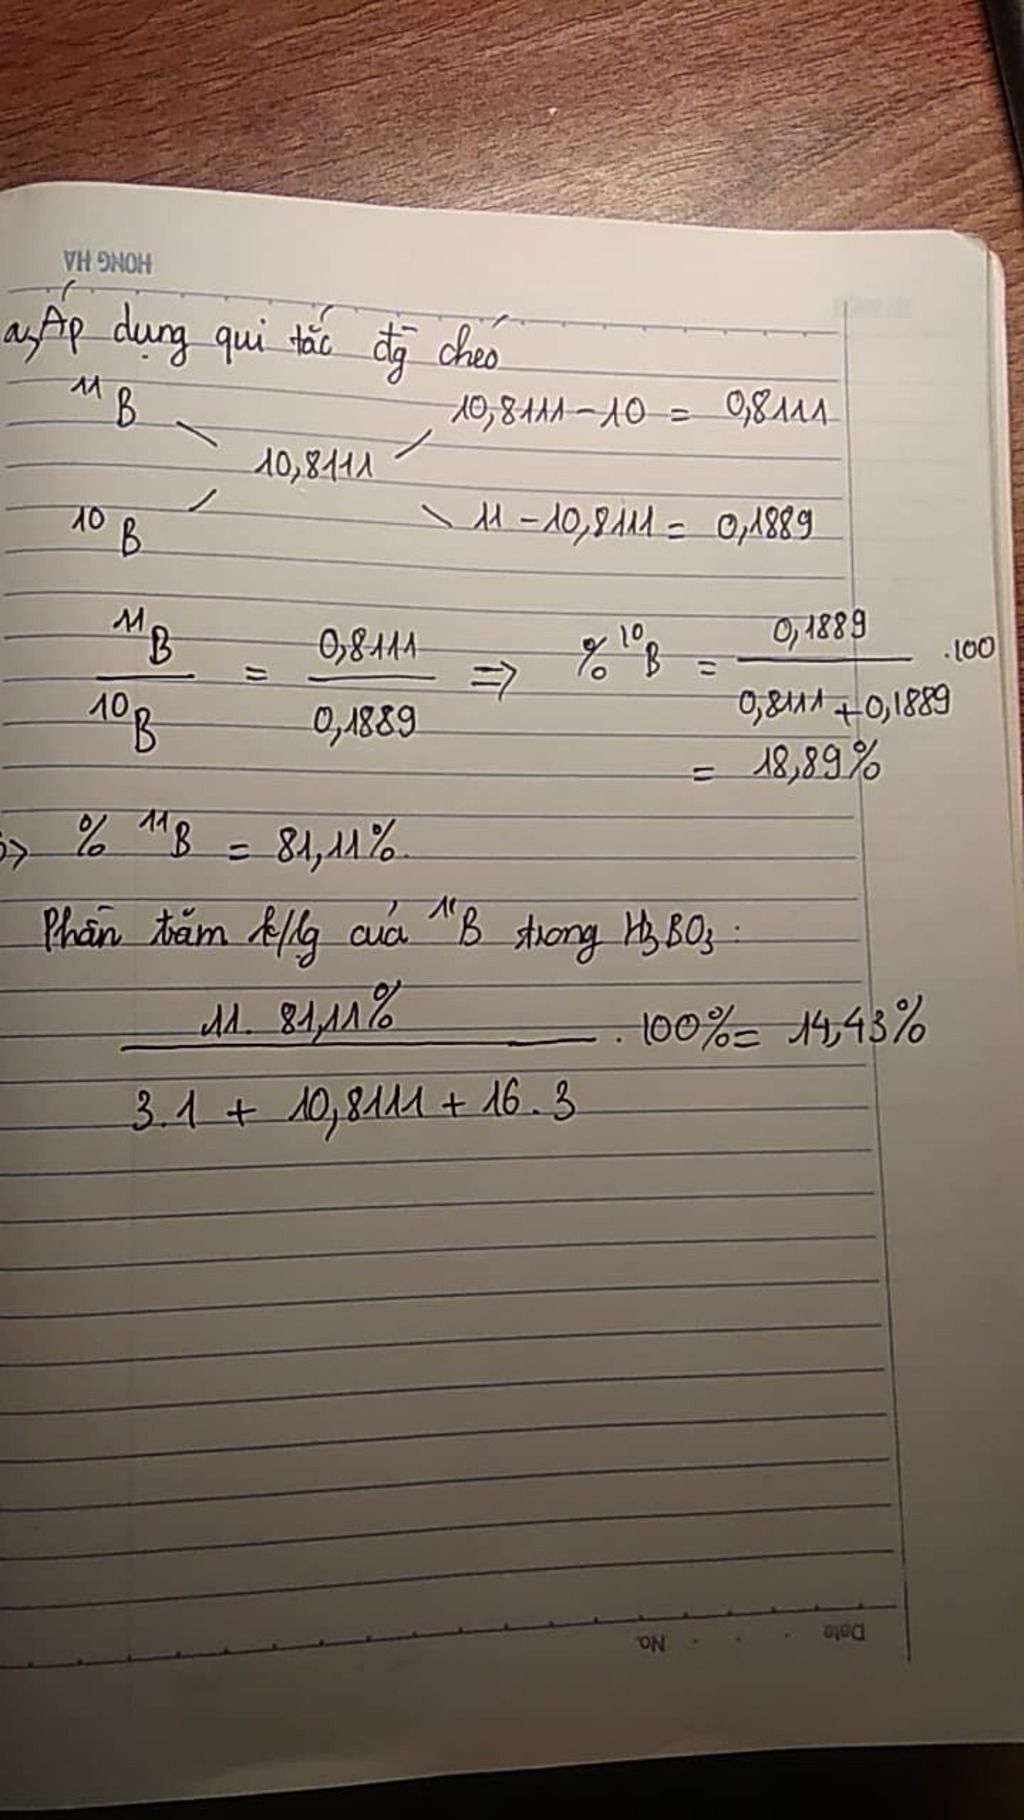 HONG HA
a, Áp dụng qui tắc đg chéo
¹¹B 10,8111 - 10 = 0,8111
10,8111
¹⁰B 11 - 10,8111 = 0,1889
¹¹B / ¹⁰B = 0,8111 / 0,1889 => % ¹⁰B = 0,1889 / (0,8111 + 0,1889) .100
= 18,89%
=> % ¹¹B = 81,11%.
Phần trăm k/lg của ¹¹B trong H₃BO₃ :
11. 81,11% / (3.1 + 10,8111 + 16.3) . 100% = 14,43%
Date No.